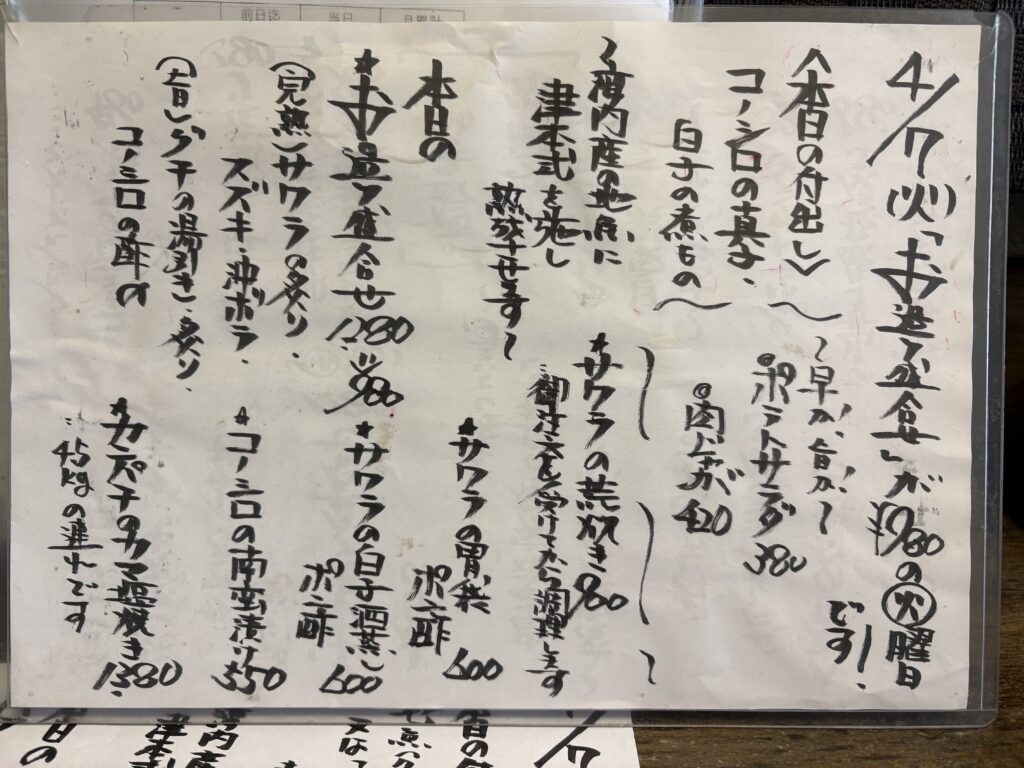 4/7(火)「お造り盛合せ」が¥980の㊋曜日
です!
〈本日の付出し〉
コノシロの真子、
白子の煮もの
〜早い!旨い!〜
ポテトサラダ 380
◎肉じゃが 420
〜湾内産の地魚に
津本式を施し
熟成させます〜
★サワラの荒炊き 980
…御注文を受けてから調理します
本日の
★お造り盛合せ 1280…980
(完熟)サワラの炙り、
スズキ、沖ボラ、
(旨し)グチの湯引き、炙り、
コノシロの酢〆
★サワラの胃袋
ポン酢 600
★サワラの白子酒蒸し
ポン酢 600
★コノシロの南蛮漬け 550
★カンパチのカマ塩焼き 1380
…45kgの連れです
前日迄 当日 月累計
4/7